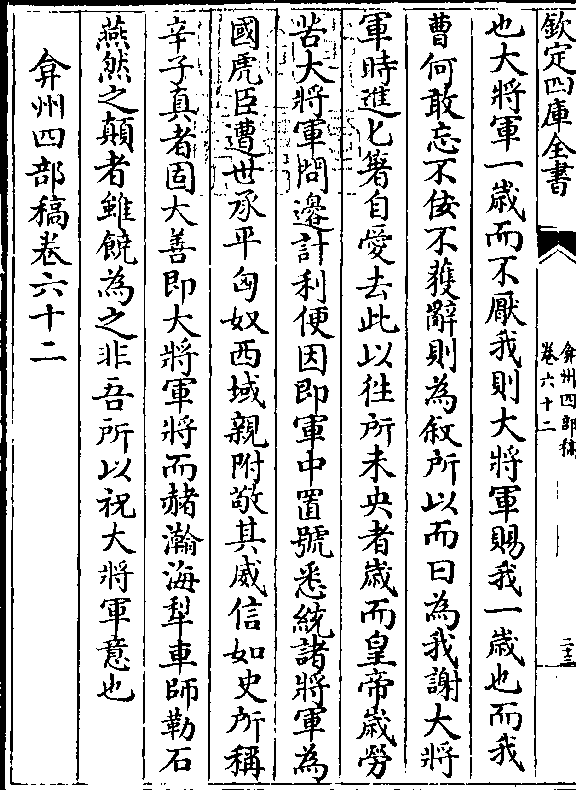 欽定四庫全書
弇州四部稿
卷六十二
二十三
也大將軍一歲而不厭我則大將軍賜我一歲也而我
曹何敢忘不佞不獲辭則為叙所以而曰為我謝大將
軍時進匕箸自愛去此以徃所未央者歲而皇帝歲勞
苦大將軍問邊計利便因即軍中置號悉統諸將軍為
國虎臣遭世承平匈奴西域親附敬其威信如史所稱
辛子真者固大善即大將軍將而赭瀚海犁車師勒石
燕然之顛者雖饒為之非吾所以祝大將軍意也
弇州四部稿卷六十二